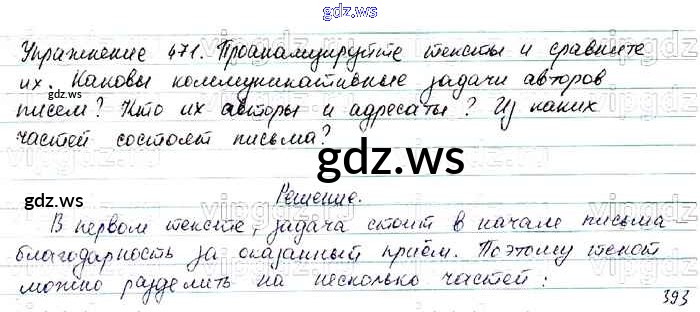 gdz.ws
Упражнение 471. Проанализируйте тексты и сравните
их. Каковы коммуникативные задачи авторов
писем? Кто их авторы и адресаты? Из каких
частей состоят письма?
gdz.ws
gdz.ws
gdz.ws
gdz.ws
Решение.
В первом тексте, задача стоит в начале письма
благодарность за оказанный приём. Поэтому текст
можно разделить на несколько частей:
393